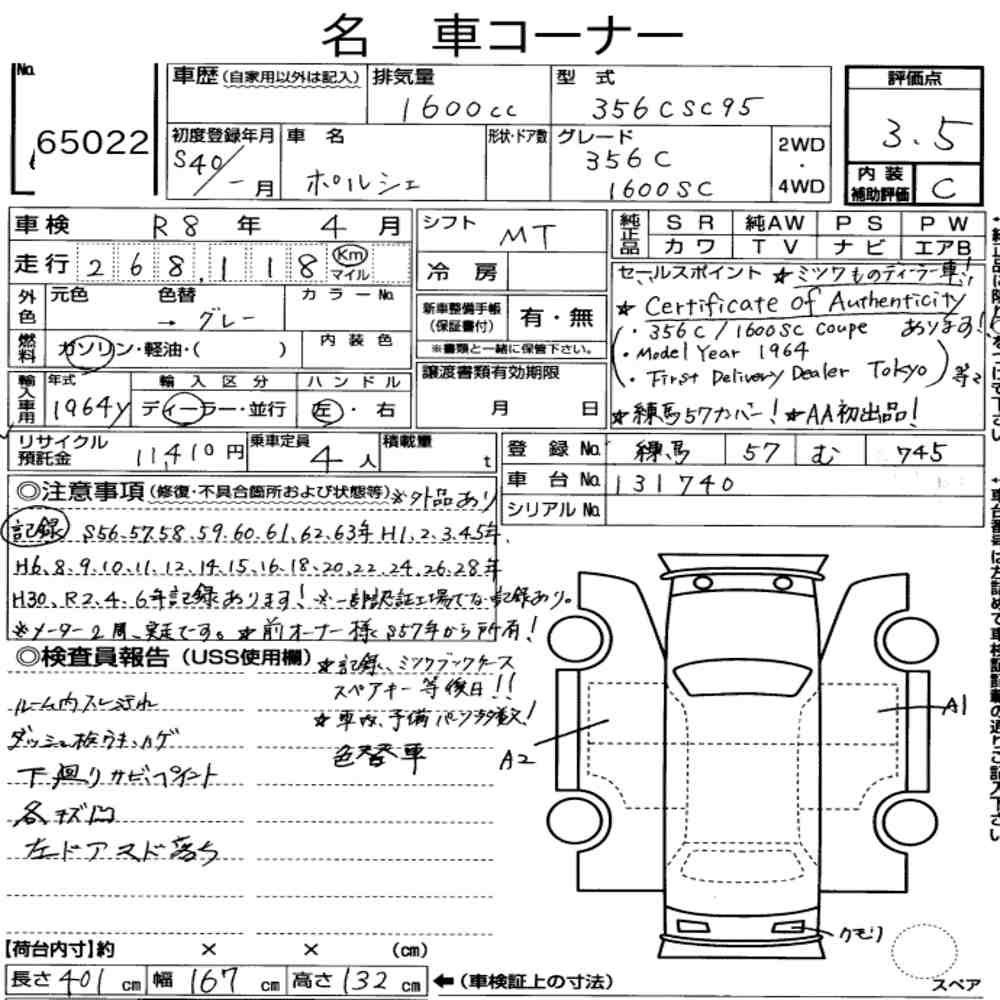 名 車コーナー
No.
65022
車歴(自家用以外は記入)
排気量
1600cc
型式
356CSC95
評価点
3.5
初度登録年月
S40/-月
車名
ポルシェ
形状・ドア数
グレード
356C
1600SC
2WD
・
4WD
内装
補助評価
C
車検 R8年 4月
シフト
MT
純正品
SR 純AW PS PW
カワ TV ナビ エアB
走行 268,118 Km マイル
冷房
セールスポイント ★ミツワものディーラー車!!
★ Certificate of Authenticity
あります!!
・356C/1600SC coupe
・Model Year 1964
・First Delivery Dealer Tokyo
等々
★練馬57カバー! ★AA初出品!
外色
元色 色替 カラーNo.
→グレー
新車整備手帳
(保証書付)
有・無
※書類と一緒に保管下さい。
燃料
ガソリン・軽油・( )
内装色
譲渡書類有効期限
月 日
輸入車用
年式
1964y
輸入区分
ディーラー・並行
ハンドル
左・右
リサイクル
預託金
11,410円
乗車定員
4人
積載量
t
登録No. 練馬 57 む 745
車台No. 131740
シリアルNo.
◎注意事項(修復・不具合箇所および状態等)※外品あり
記録 S56.57.58.59.60.61.62.63年 H1.2.3.4.5年.
H6.8.9.10.11.12.14.15.16.18.20.22.24.26.28年
H30、R2.4.6年記録あります! ※一部認証工場でない記録あり。
※メーター2周、実走です。★前オーナー様S57年から所有!
◎検査員報告(USS使用欄)
★記録、ミツワブックケース
スペアキー等後日!!
★車内、予備パーツ多数!
色替車
ルーム内スレ汚れ
ダッシュ板ウキ、カゲ
下廻りサビ、ペイント
各キズ凹
左ドアスド落ち
A2
A1
クモリ
スペア
【荷台内寸】約 × × (cm)
長さ 401cm 幅 167cm 高さ 132cm ←(車検証上の寸法)